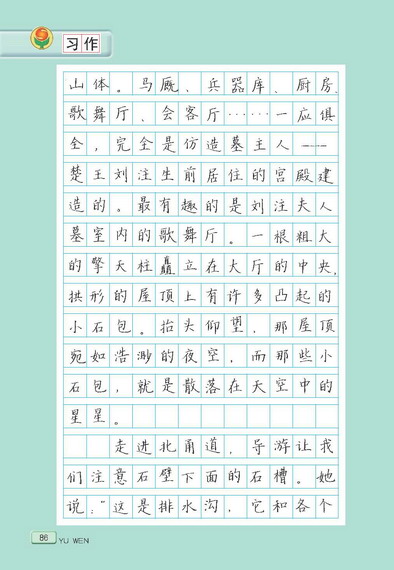 习作
山体。马厩、兵器库、厨房、
歌舞厅、会客厅……一应俱
全，完全是仿造墓主人——
楚王刘注生前居住的宫殿建
造的。最有趣的是刘注夫人
墓室内的歌舞厅。一根粗大
的擎天柱矗立在大厅的中央，
拱形的屋顶上有许多凸起的
小石包。抬头仰望，那屋顶
宛如浩渺的夜空，而那些小
石包，就是散落在天空中的
星星。
走进北甬道，导游让我
们注意石壁下面的石槽。她
说：“这是排水沟，它和各个
86
YU WEN